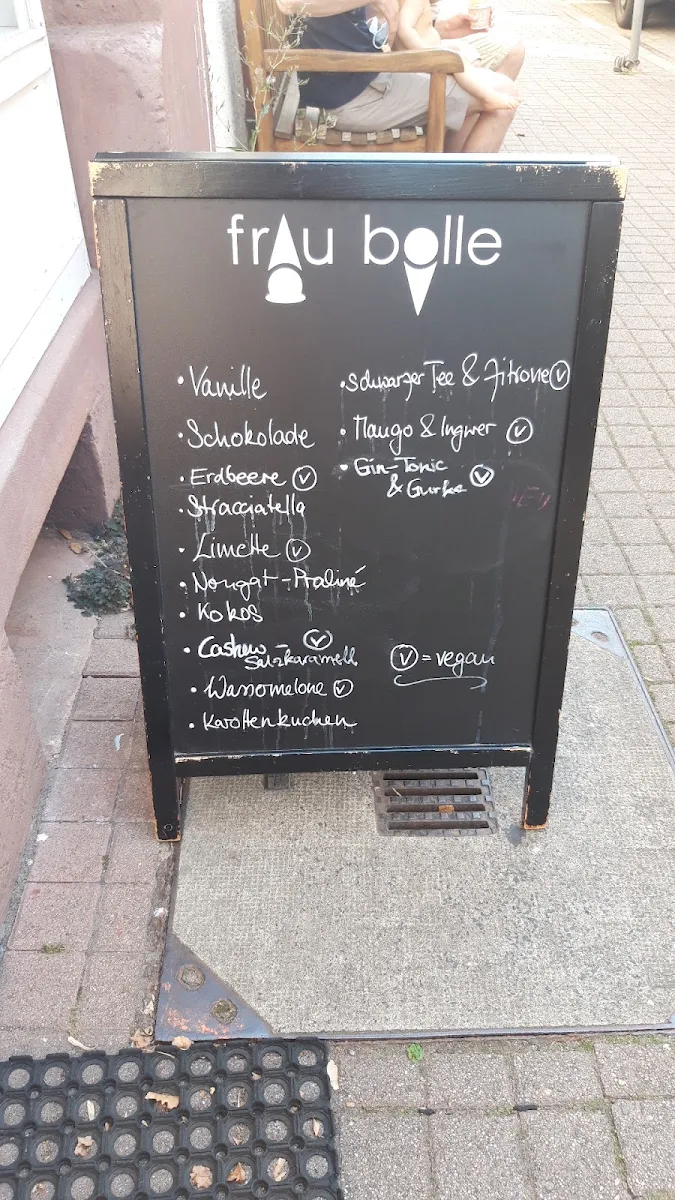 frau bolle
• Vanille
• Schokolade
• Erdbeere ⓥ
• Stracciatella
• Limette ⓥ
• Nougat-Praliné
• Kokos
• Cashew - ⓥ
Salzkaramell
• Wassermelone ⓥ
• Karottenkuchen
• Schwarzer Tee & Zitrone ⓥ
• Mango & Ingwer ⓥ
• Gin-Tonic
& Gurke ⓥ
ⓥ = vegan